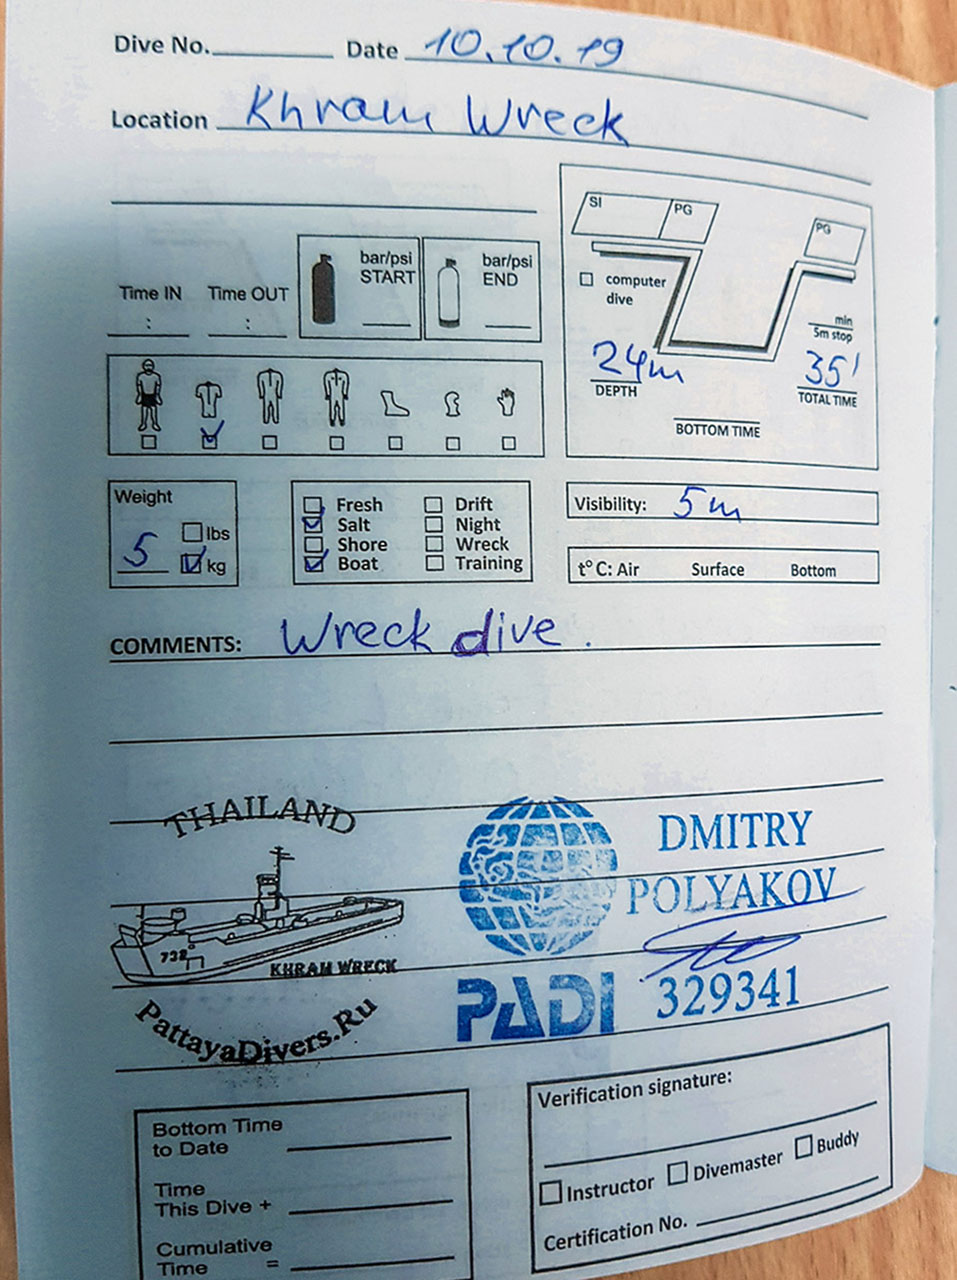 Dive No. Date 10.10.19
Location Khram Wreck
SI PG PG
bar/psi START bar/psi END
Time IN Time OUT
: :
computer dive
min
5m stop
24m 35'
DEPTH TOTAL TIME
BOTTOM TIME
Weight
5 lbs
kg
Fresh Drift
Salt Night
Shore Wreck
Boat Training
Visibility: 5m
t° C: Air Surface Bottom
COMMENTS: Wreck dive.
THAILAND
732
KHRAM WRECK
PattayaDivers.Ru
DMITRY
POLYAKOV
PADI 329341
Bottom Time
to Date
Time
This Dive +
Cumulative
Time =
Verification signature:
Instructor Divemaster Buddy
Certification No.